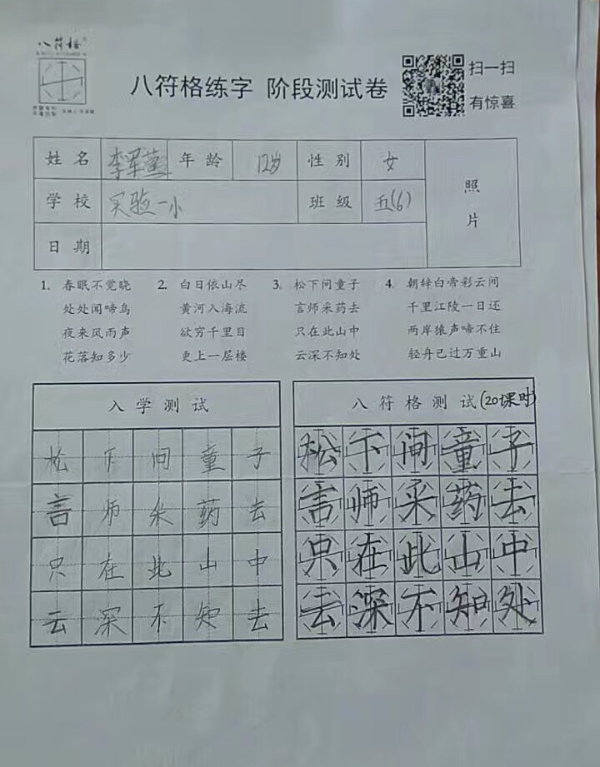 八符格
八符格练字 阶段测试卷
扫一扫
有惊喜
姓名 李军 年龄 12岁 性别 女
照片
学校 实验一小 班级 五(6)
日期
1. 春眠不觉晓 2. 白日依山尽 3. 松下问童子 4. 朝辞白帝彩云间
处处闻啼鸟 黄河入海流 言师采药去 千里江陵一日还
夜来风雨声 欲穷千里目 只在此山中 两岸猿声啼不住
花落知多少 更上一层楼 云深不知处 轻舟已过万重山
入学测试
松下问童子
言师采药去
只在此山中
云深不知去
八符格测试(20课时)
松下问童子
言师采药去
只在此山中
去深不知处